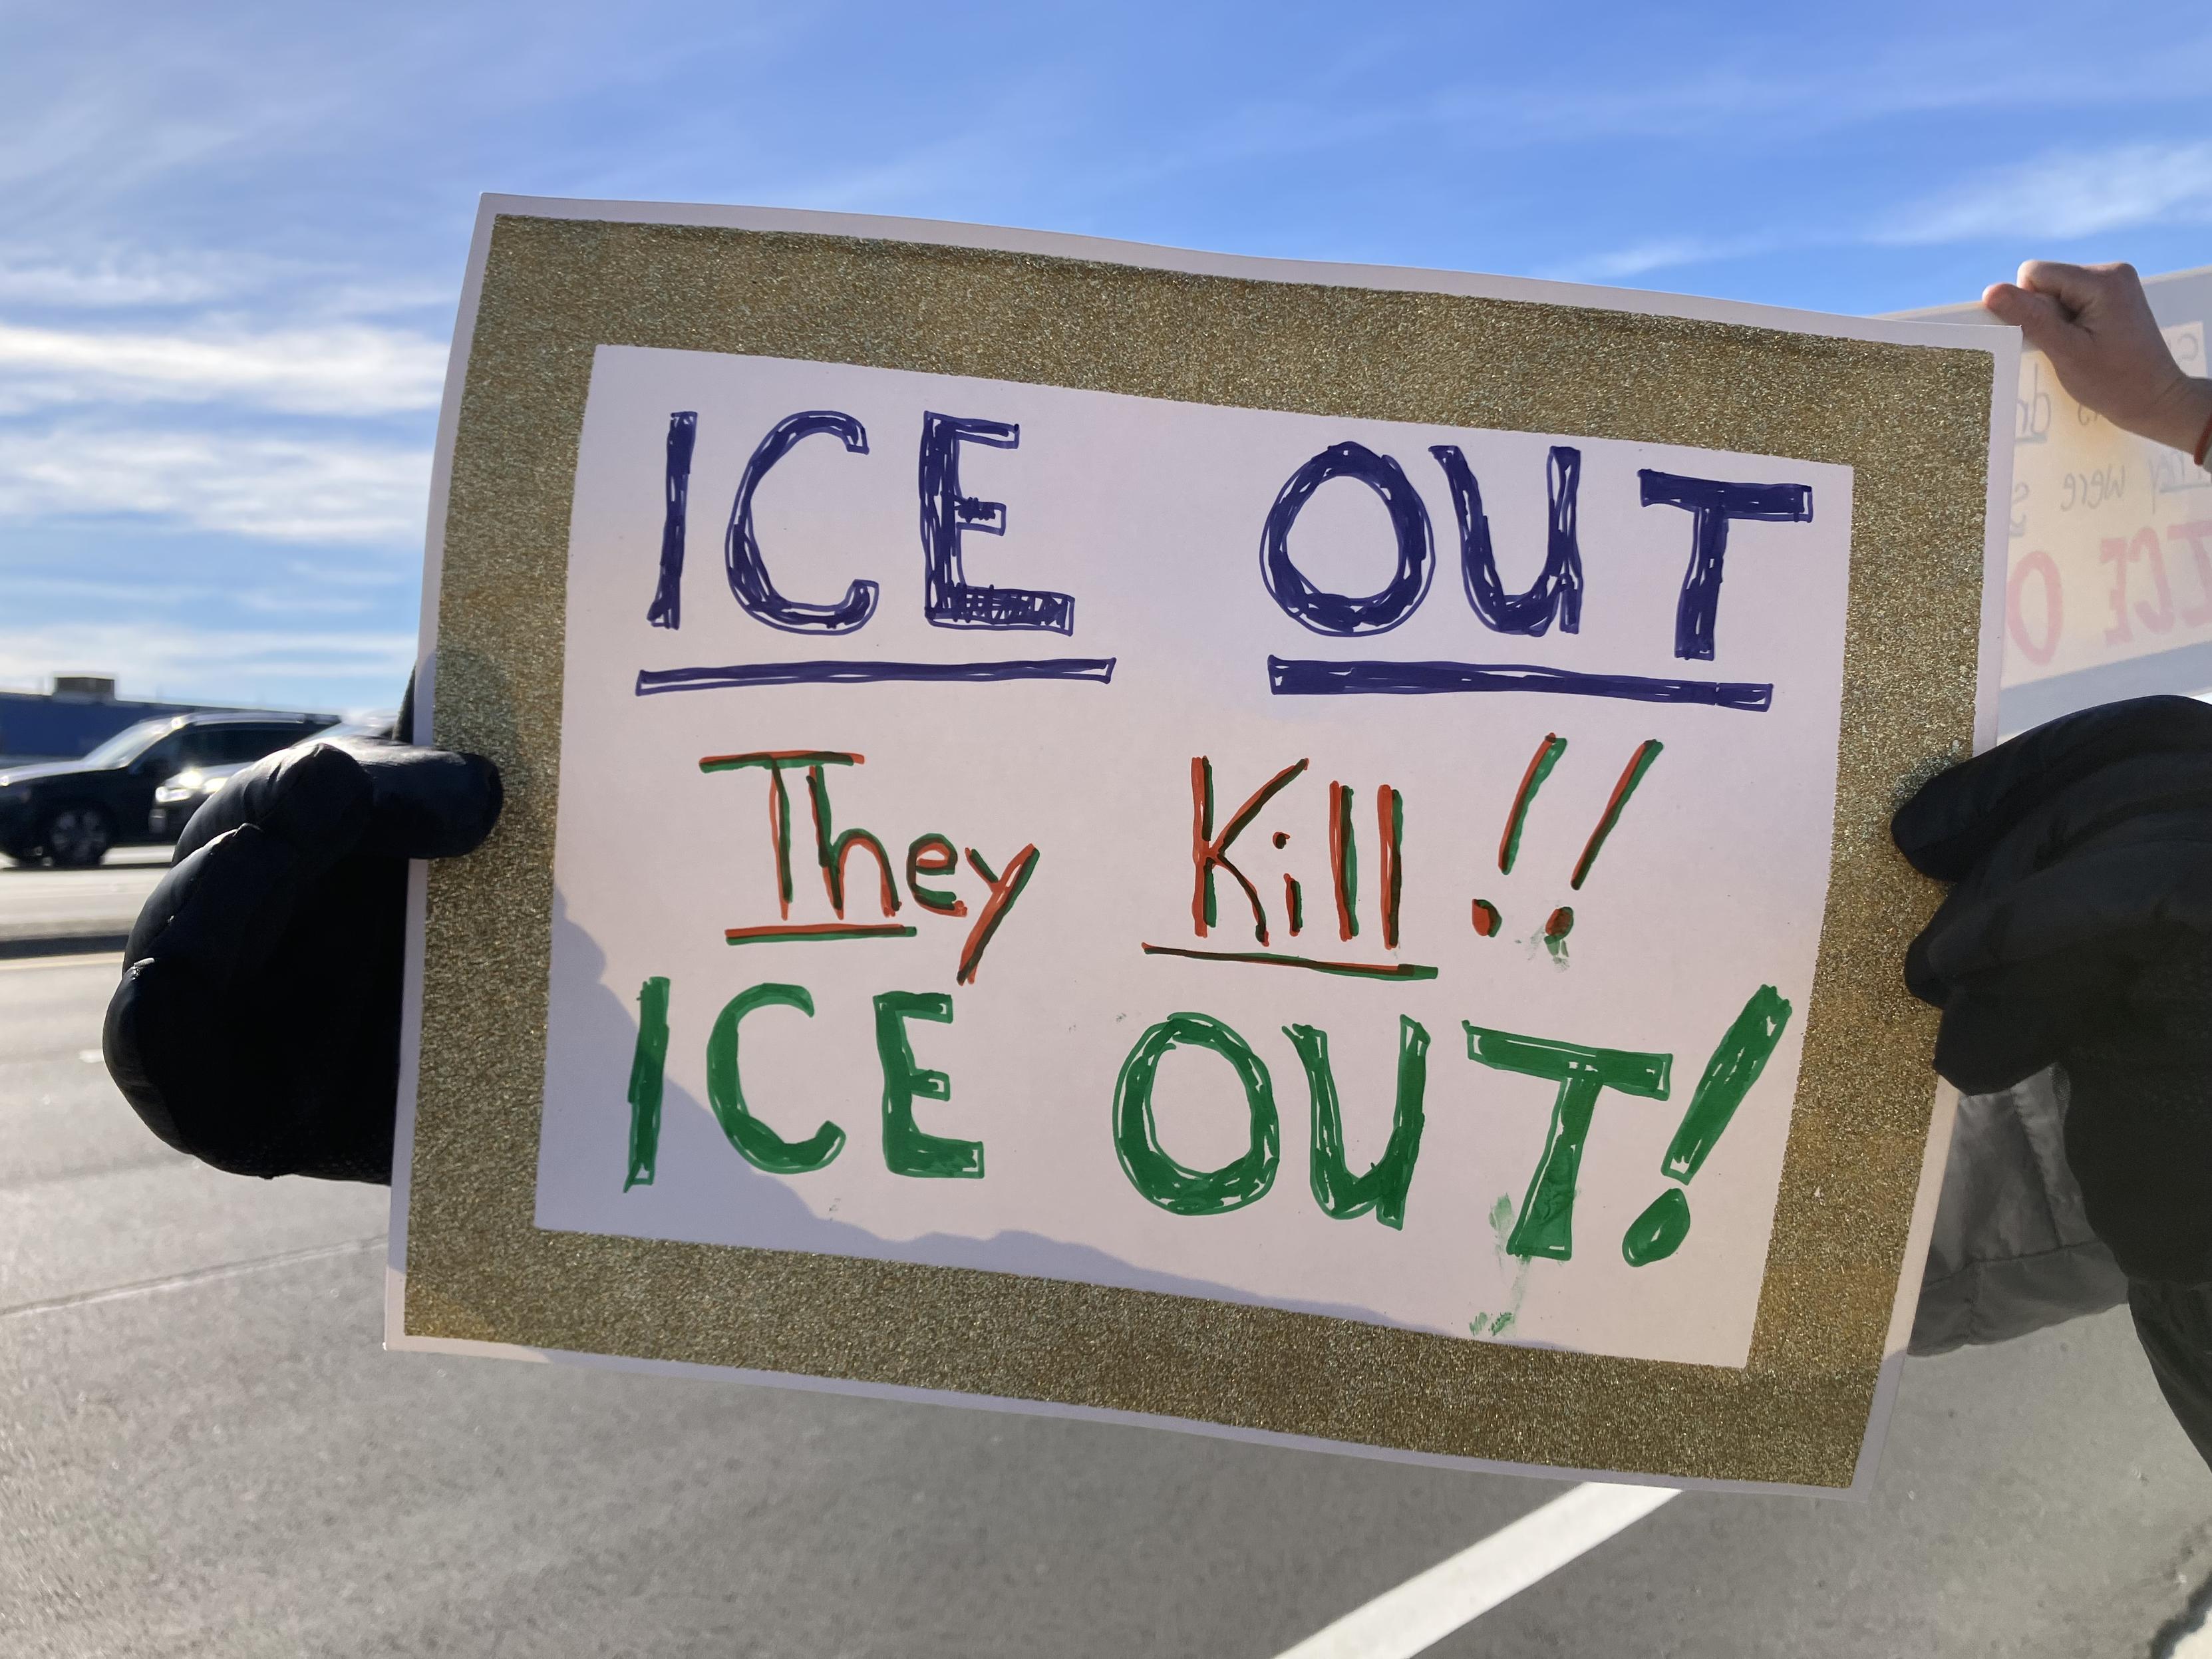 ICE OUT
They Kill!!
ICE OUT!
they were
ICE O